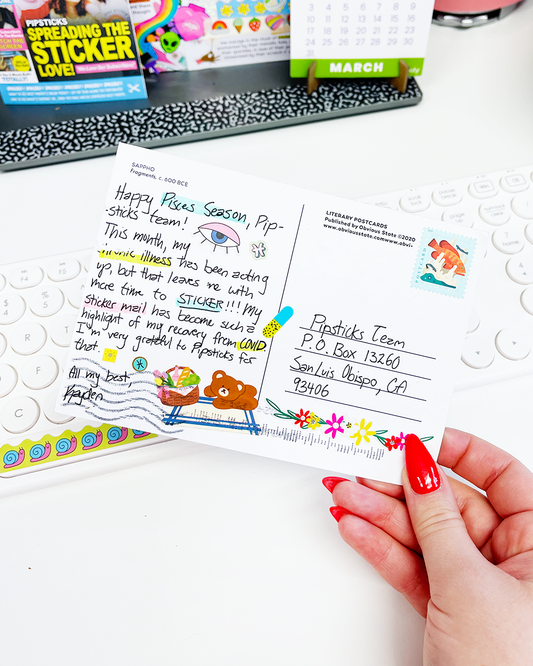 PIPSTICKS
SPREADING THE
STICKER
LOVE!
MARCH
SAPPHO
Fragments, c. 600 BCE
Happy Pisces Season, Pip-
sticks team!
This month, my
chronic illness has been acting
up, but that leaves me with
more time to STICKER!!! My
sticker mail has become such a
highlight of my recovery from COVID.
I'm very grateful to Pipsticks for
that
All my best,
Kayden
LITERARY POSTCARDS
Published by Obvious State ©2020
www.obviousstate.com
Pipsticks Team
P.O. Box 13260
San Luis Obispo, CA
93406